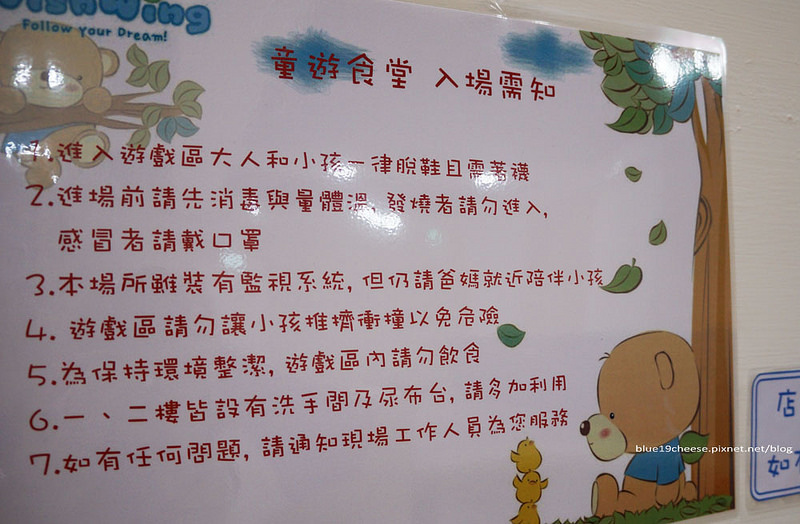 Follow Your Dream!
童遊食堂 入場需知
1.進入遊戲區大人和小孩一律脫鞋且需著襪
2.進場前請先消毒與量體溫, 發燒者請勿進入,
感冒者請戴口罩
3.本場所雖裝有監視系統, 但仍請爸媽就近陪伴小孩
4. 遊戲區請勿讓小孩推擠衝撞以免危險
5.為保持環境整潔, 遊戲區內請勿飲食
6.一、二樓皆設有洗手間及尿布台, 請多加利用
7.如有任何問題, 請通知現場工作人員為您服務
blue19cheese.pixnet.net/blog
店
如